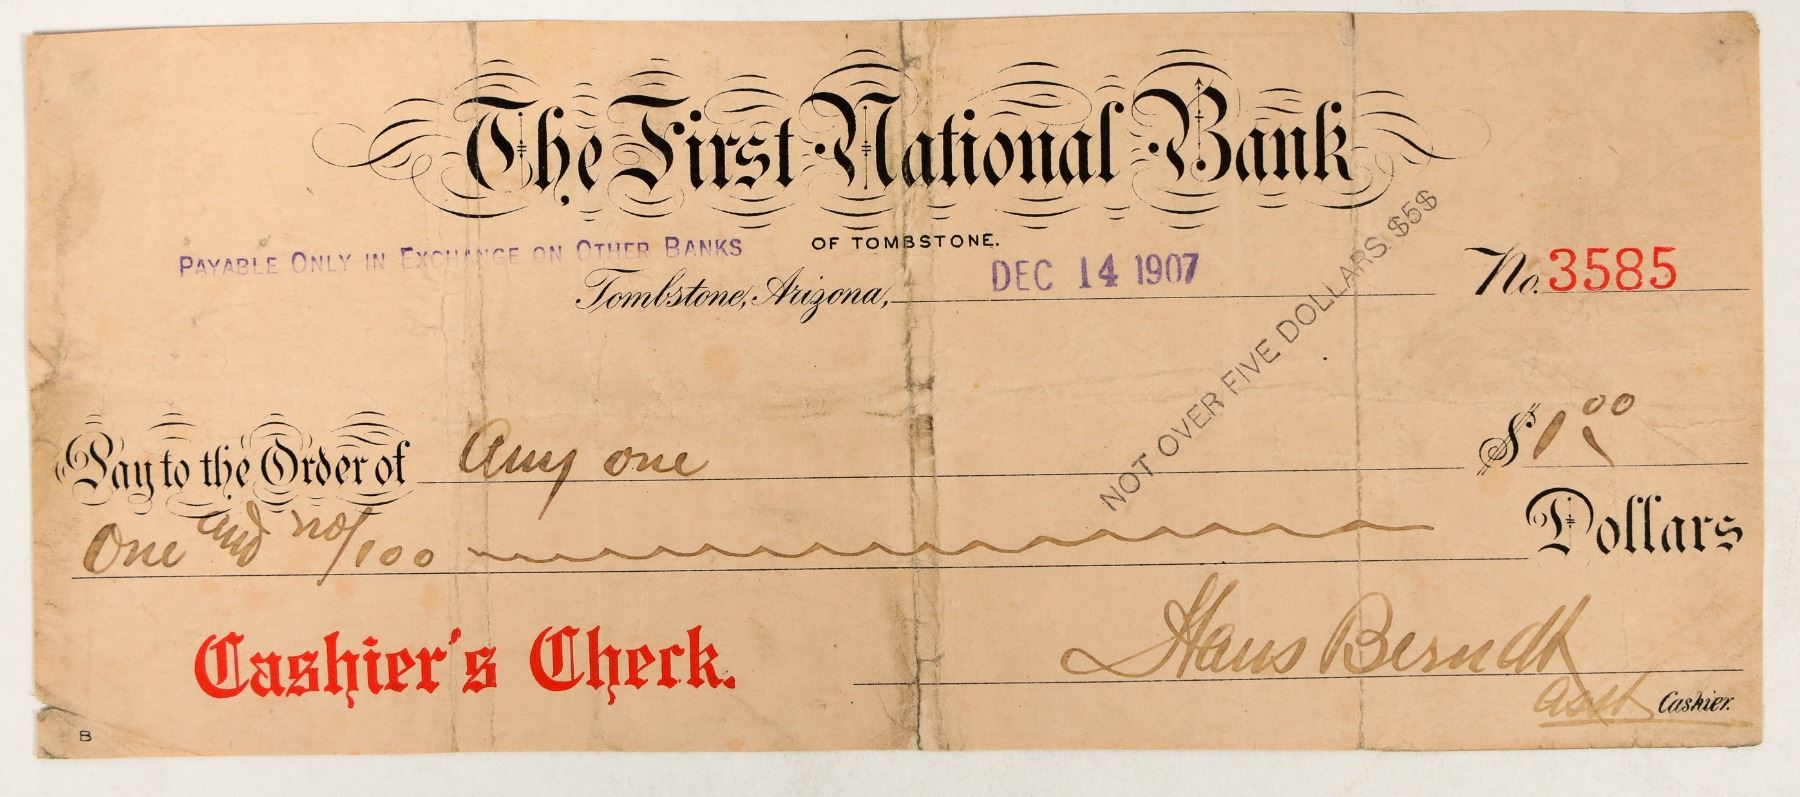 The First National Bank
OF TOMBSTONE.
PAYABLE ONLY IN EXCHANGE ON OTHER BANKS
Tombstone, Arizona, DEC 14 1907
No. 3585
NOT OVER FIVE DOLLARS $5$
Pay to the Order of Any one $1.00
One and no/100 Dollars
Cashier's Check.
Hans Berndt
Asst Cashier.
B